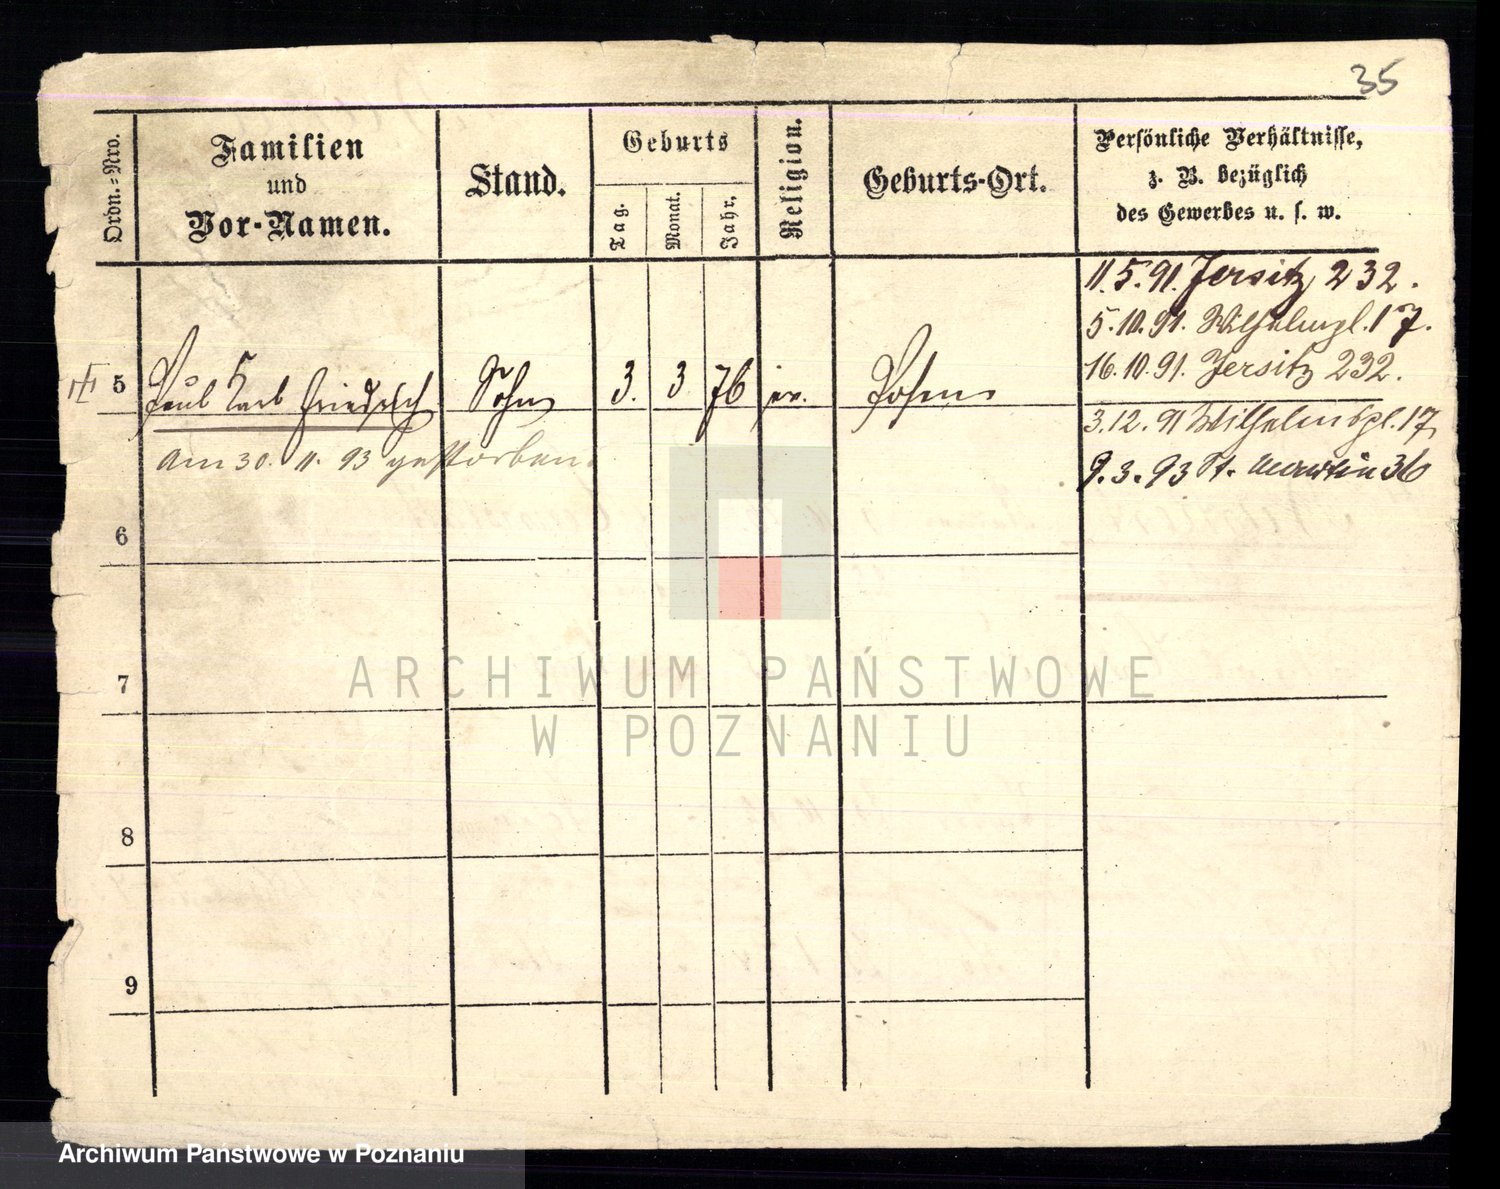 35
Ordn.-Nro.
Familien
und
Vor-Namen.
Stand.
Geburts
Tag.
Monat.
Jahr.
Religion.
Geburts-Ort.
Persönliche Verhältnisse,
z. B. bezüglich
des Gewerbes u. s. w.
11.5.91. Jersitz 232.
5.10.91. Wilhelmspl. 17.
16.10.91. Jersitz 232.
5 Paul Karl Friedrich Sohn 3. 3 76 ev. Posen
3.12.91 Wilhelmspl. 17
am 30. 11. 93 gestorben.
9.3.93 St. Martin 36
6
7
8
9
ARCHIWUM PAŃSTWOWE
W POZNANIU
Archiwum Państwowe w Poznaniu